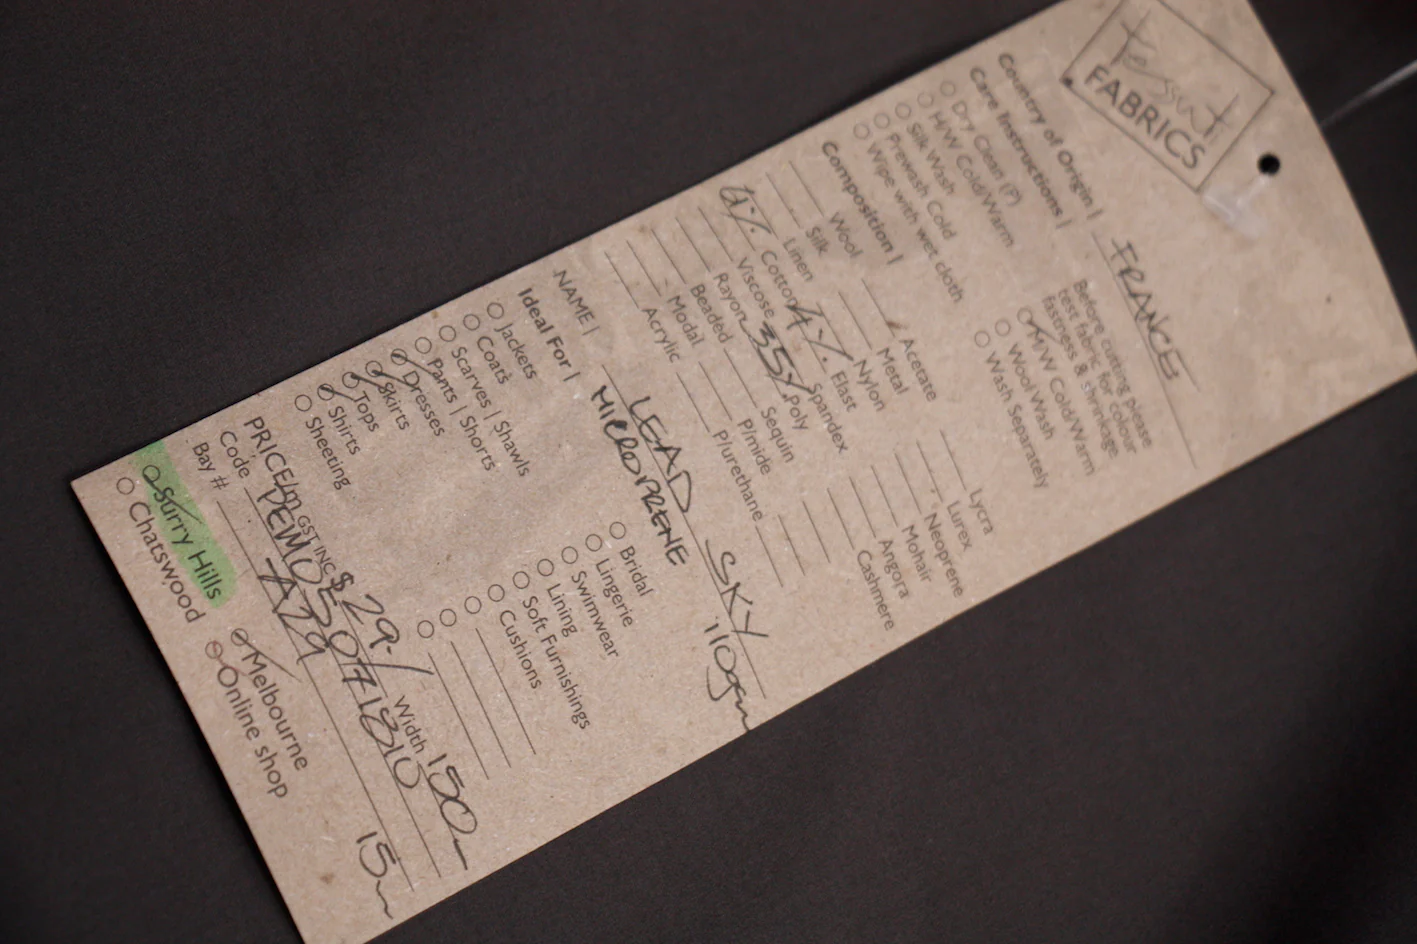 tessuti
FABRICS
Country of Origin | FRANCE
Care Instructions |
Before cutting please
test fabric for colour
fastness & shrinkage
Dry Clean (P)
H/W Cold/Warm
Silk Wash
Prewash Cold
Wipe with wet cloth
M/W Cold/Warm
Wool Wash
Wash Separately
Composition |
Wool
Silk
Linen
61% Cotton
Viscose
Rayon
Beaded
Modal
Acrylic
Acetate
Metal
Nylon
4% Elast
Spandex
35% Poly
Sequin
P/mide
P/urethane
Lycra
Lurex
Neoprene
Mohair
Angora
Cashmere
NAME | LEAD SKY
MICROPRENE 110gsm
Ideal For |
Jackets
Coats
Scarves | Shawls
Pants | Shorts
Dresses
Skirts
Tops
Shirts
Sheeting
Bridal
Lingerie
Swimwear
Lining
Soft Furnishings
Cushions
PRICE/m GST INC $ 29-/ Width 150
Code
Bay # A29 15m
Surry Hills
Chatswood
Melbourne
Online shop